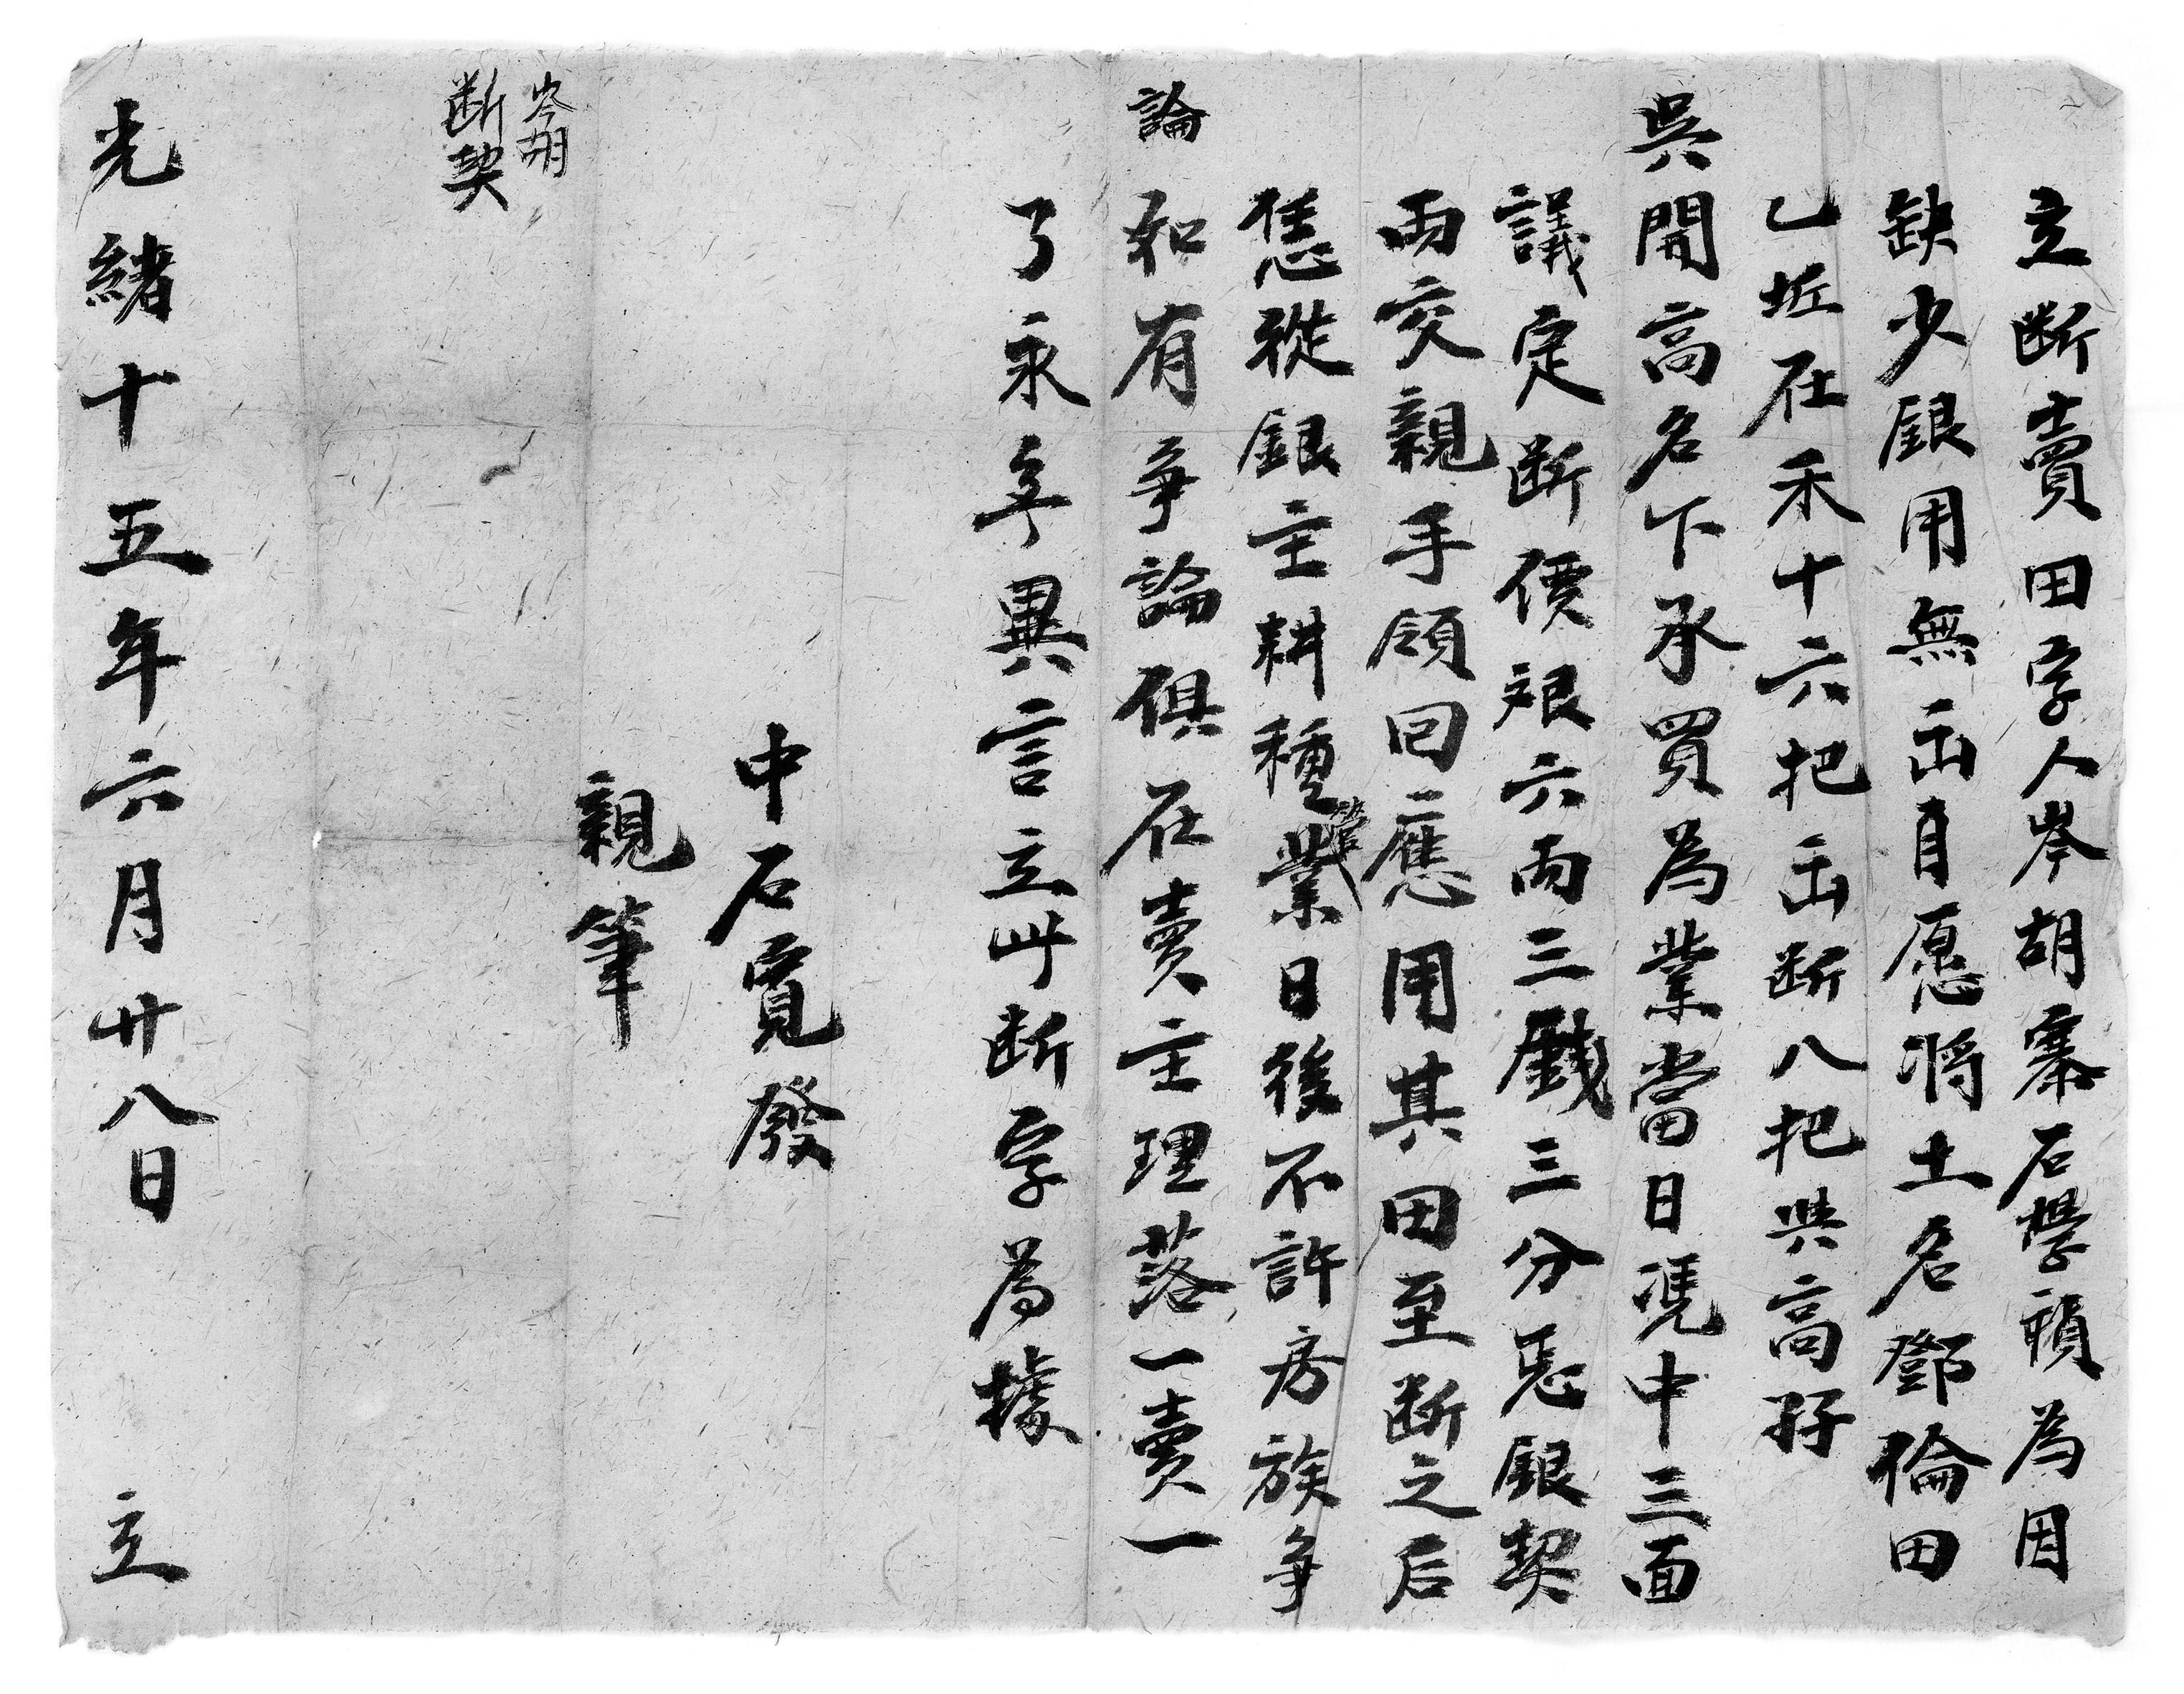 立断賣田字人岑胡寨石學禎為因
缺少銀用無出自愿将土名鄧倫田
乙坵在禾十六把出断八把與高孖
吳開高名下承買為業當日凴中三面
議定断價艮六両三錢三分恁銀契
両交親手領回應用其田至断之后
恁從銀主耕種管業日後不許房族争
論和有争論俱在賣主理落一賣一
了永無異言立此断字為據
中石寬發
親筆
岑胡
断契
光緒十五年六月廿八日 立